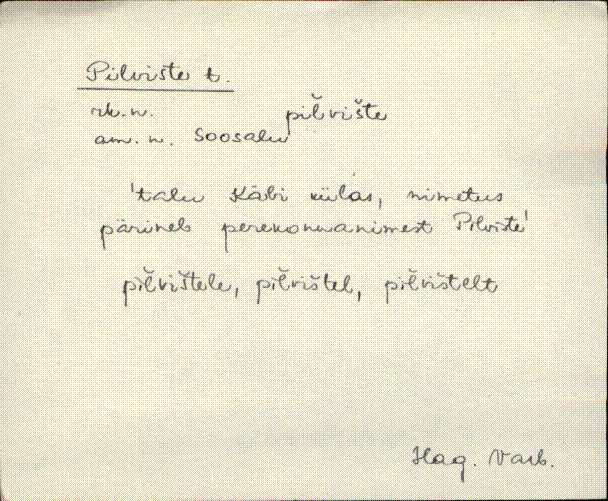 Pilviste t.
rk.n. pil̆vište
am. n. Soosalu
'talu Käbi külas, nimetus
pärineb perekonnanimest Pilviste'
pil̆vištele, pil̆vištel, pil̆vištelt
Hag. Varb.